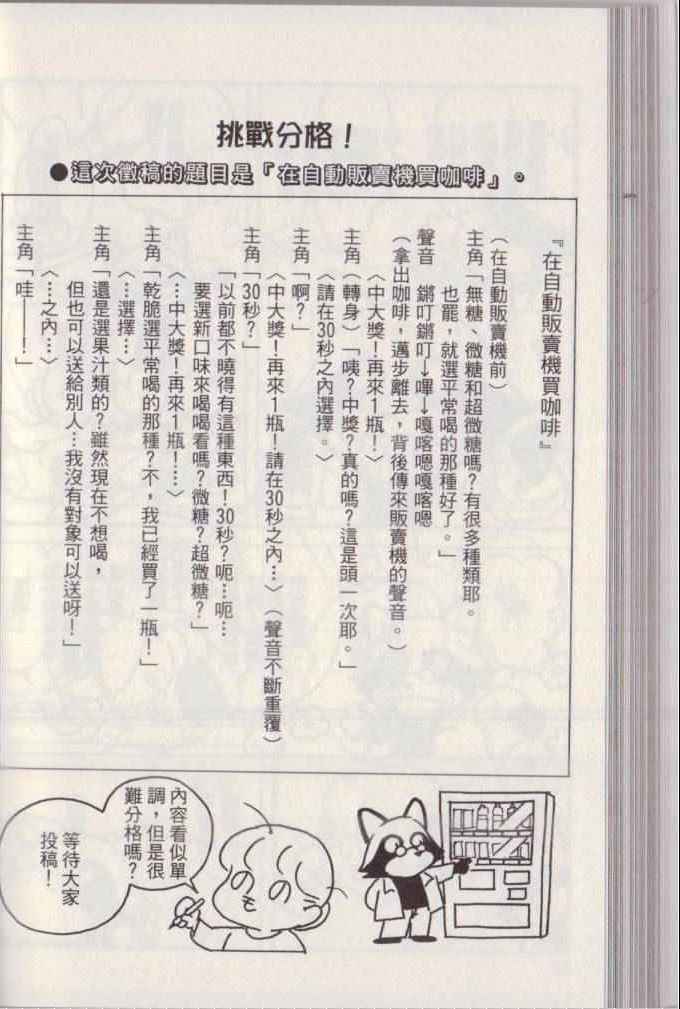 挑戰分格！
●這次徵稿的題目是「在自動販賣機買咖啡」。
『在自動販賣機買咖啡』
（在自動販賣機前）
主角「無糖、微糖和超微糖嗎？有很多種類耶。
也罷，就選平常喝的那種好了。」
聲音　鏘叮鏘叮→嗶→嘎喀嗯嘎喀嗯
（拿出咖啡，邁步離去，背後傳來販賣機的聲音。）
〈中大獎！再來1瓶！〉
主角（轉身）「咦？中獎？真的嗎？這是頭一次耶。」
〈請在30秒之內選擇。〉
主角「啊？」
〈中大獎！再來1瓶！請在30秒之內…〉（聲音不斷重覆）
主角「30秒？」
「以前都不曉得有這種東西！30秒？呃…呃…
要選新口味來喝喝看嗎？微糖？超微糖？」
〈…中大獎！再來1瓶！……〉
主角「乾脆選平常喝的那種？不，我已經買了一瓶！」
〈…選擇…〉
主角「還是選果汁類的？雖然現在不想喝，
但也可以送給別人…我沒有對象可以送呀！」
〈…之內…〉
主角「哇——！」
內容看似單
調，但是很
難分格嗎？
等待大家
投稿！